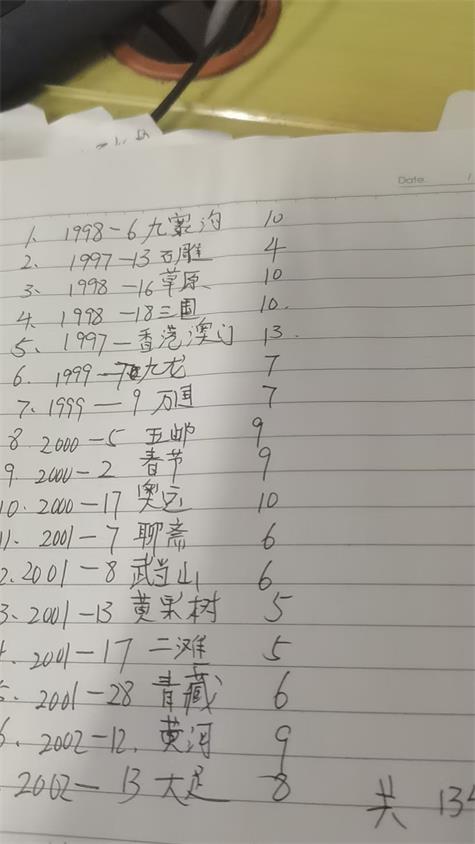 Date.
1. 1998-6 九寨沟 10
2. 1997-13 石雕 4
3. 1998-16 草原 10
4. 1998-18 三国 10.
5. 1997-香港澳门 13.
6. 1999-7 九龙 7
7. 1999-9 万国 7
8. 2000-5 五邮 9
9. 2000-2 春节 9
10. 2000-17 奥运 10
11. 2001-7 聊斋 6
2. 2001-8 武当山 6
3. 2001-13 黄果树 5
2001-17 二滩 5
2001-28 青藏 6
6. 2002-12. 黄河 9
2002-13 大足 8
共 134